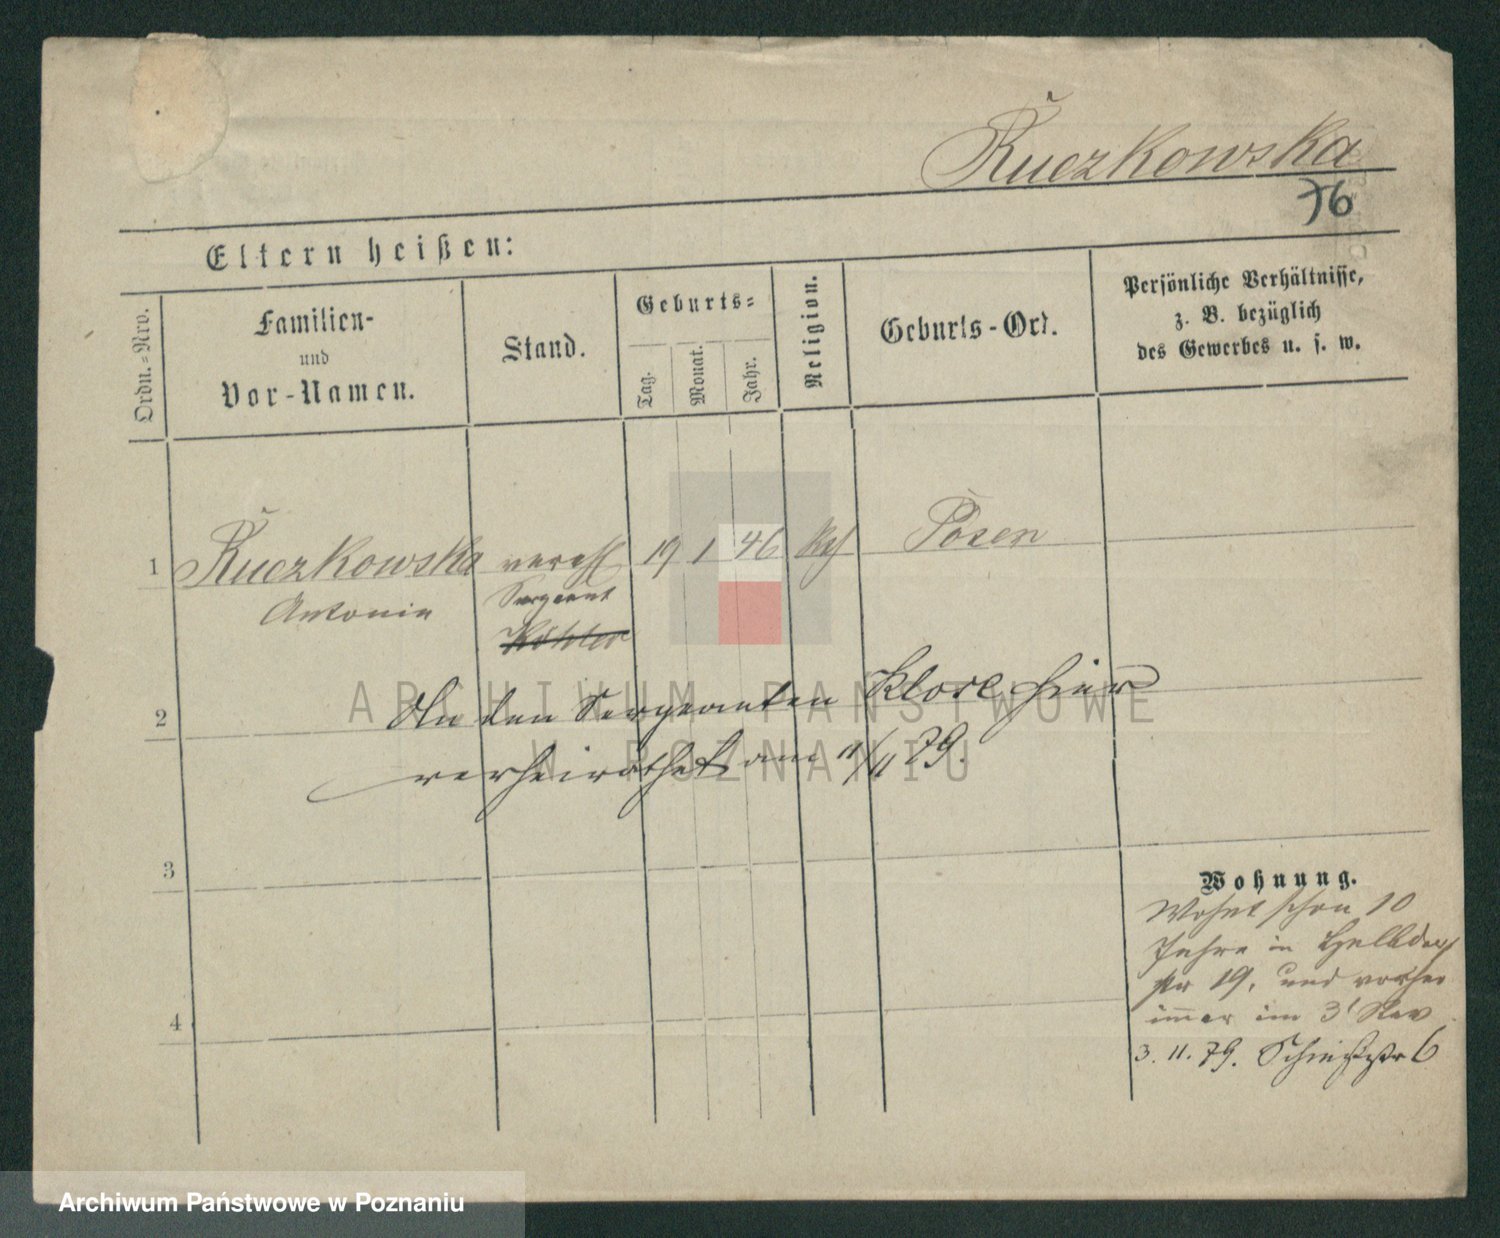 Ruczkowska
76
Eltern heißen:
Ordn.=Nro.
Familien-
und
Vor-Namen.
Stand.
Geburts=
Tag.
Monat.
Jahr.
Religion.
Geburts-Ort.
Persönliche Verhältnisse,
z. B. bezüglich
des Gewerbes u. s. w.
1 Ruczkowska verehl 19 1 46 Posen
Antonie Sergeant
Köhler
2 An den Sergeanten Klose hier
verheirathet am 11/11 79.
3
Wohnung.
Wohnt schon 10
Jahre in
str 19, und vorher
immer im 3' Rev
4
3. 11. 79. Schießstr 6
ARCHIWUM PAŃSTWOWE
W POZNANIU
Archiwum Państwowe w Poznaniu